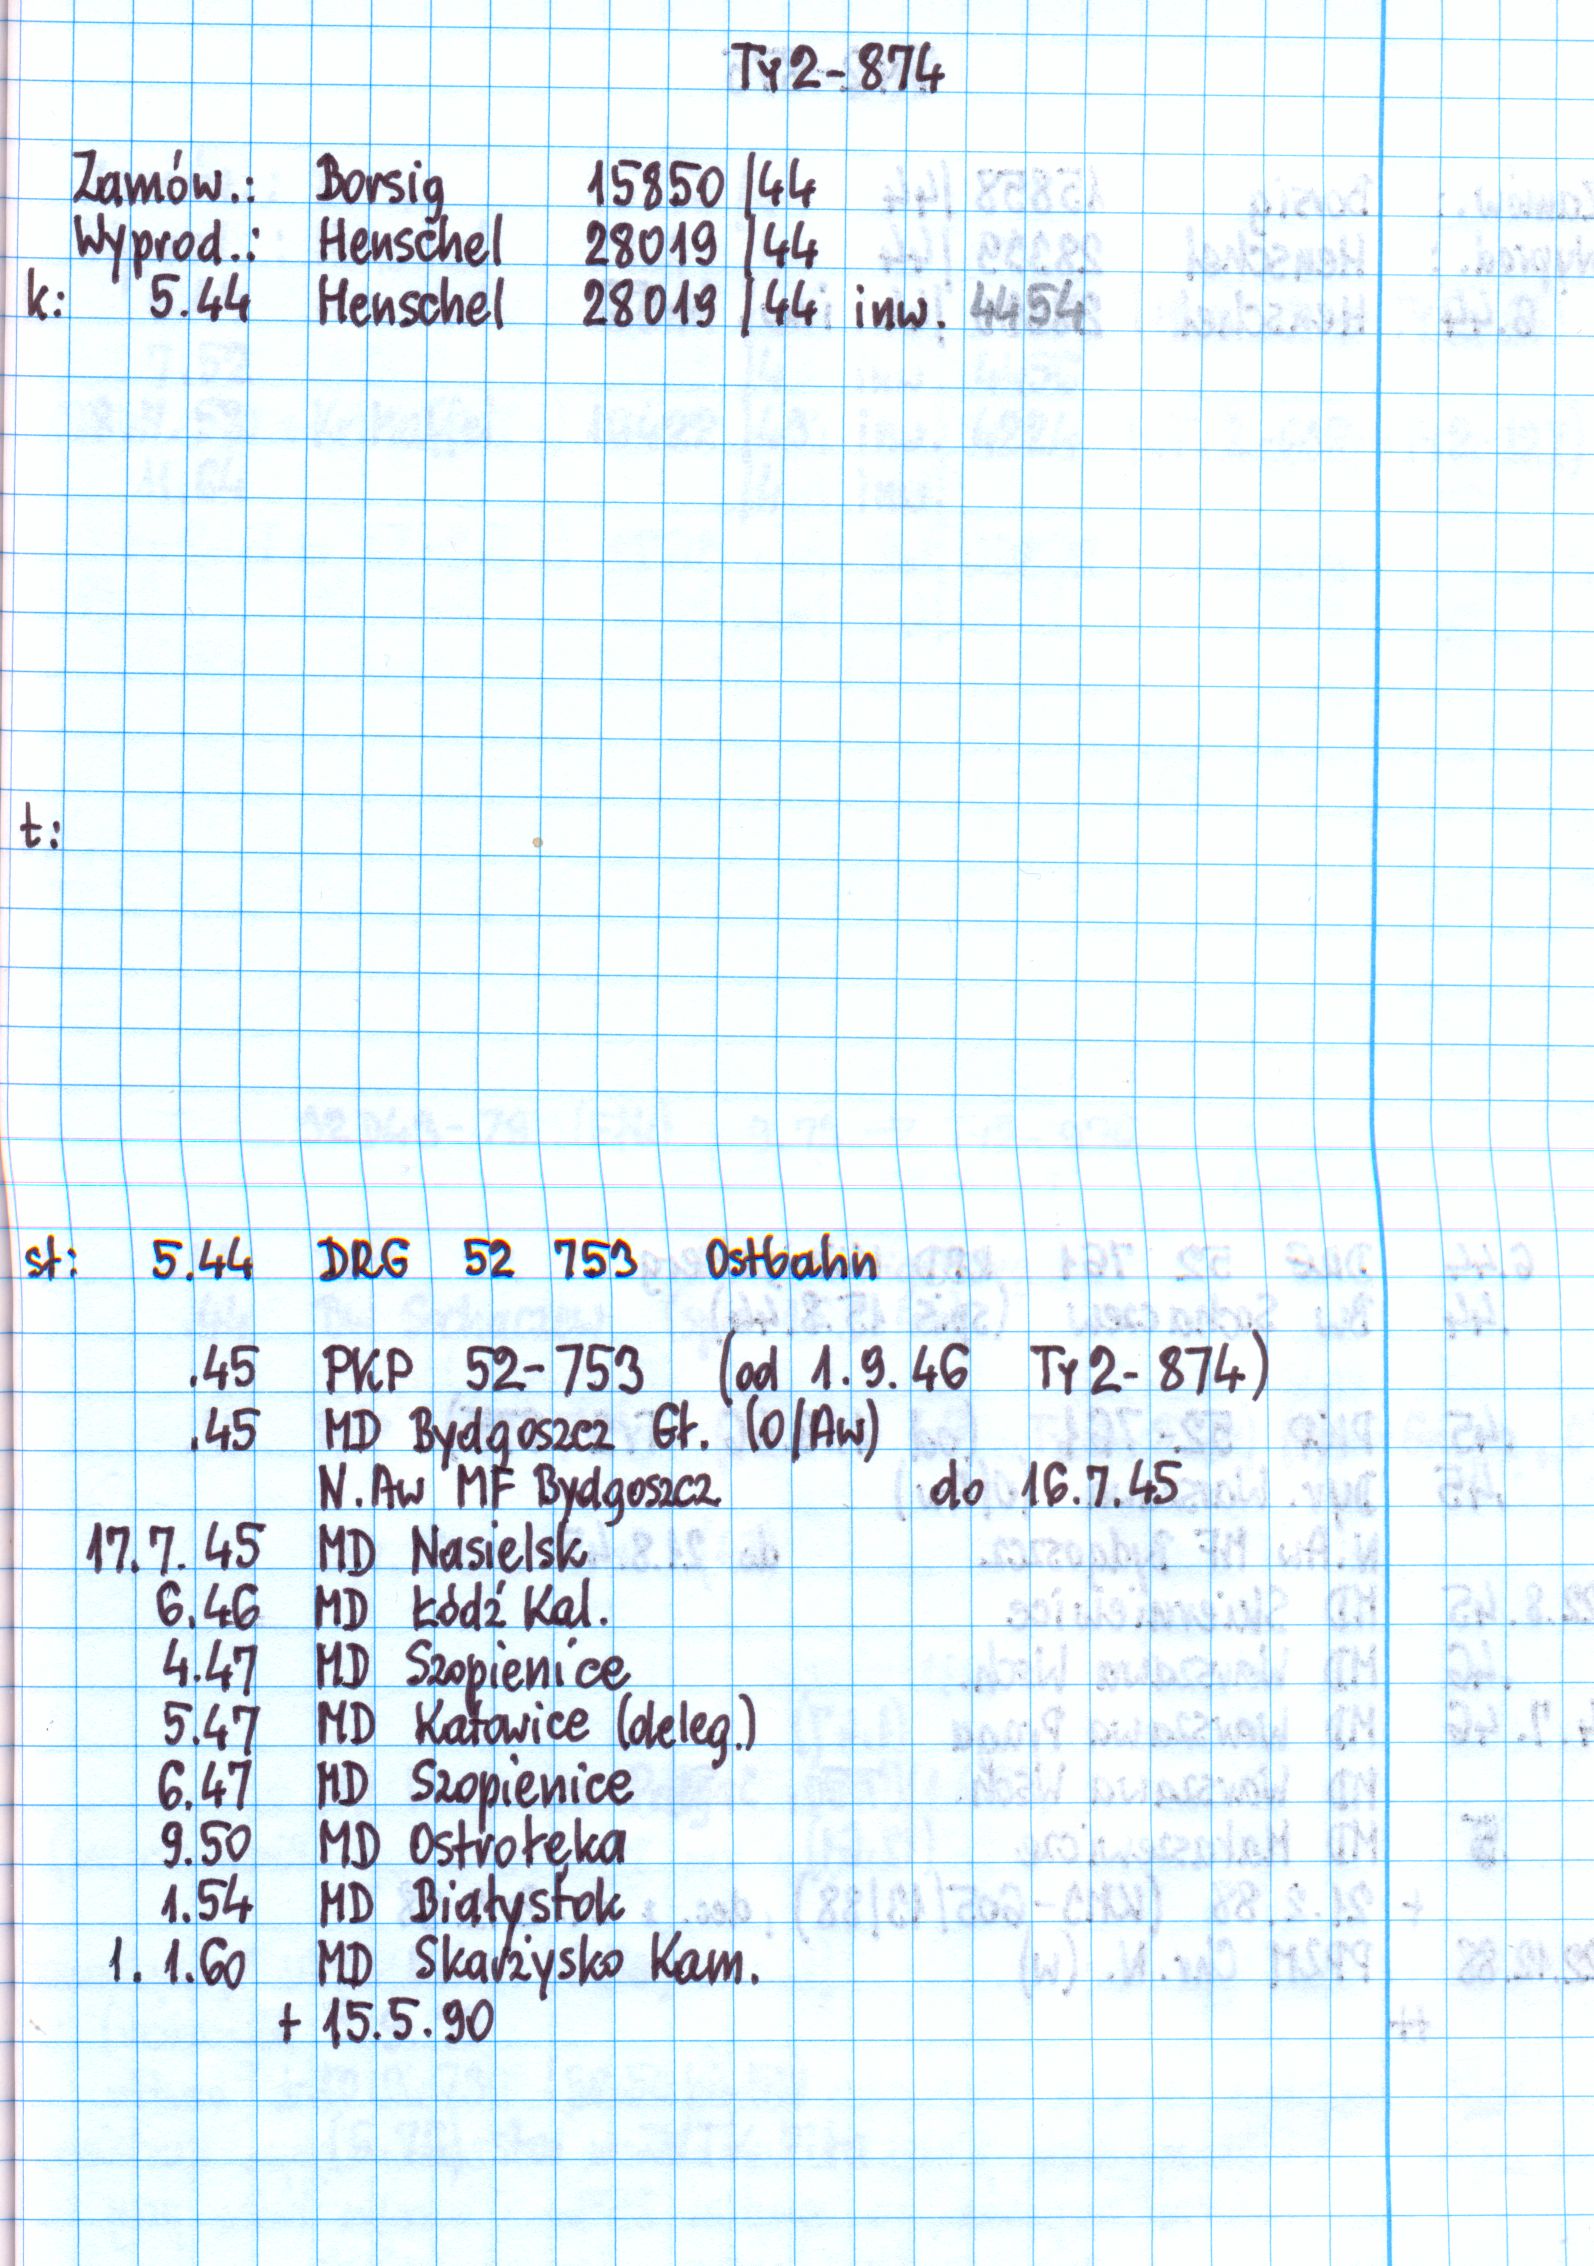 Ty2-874
Zamów.: Borsig 15850/44
Wyprod.: Henschel 28019/44
k: 5.44 Henschel 28019/44 inw. 4454
t:
st: 5.44 DRG 52 753 Ostbahn
.45 PKP 52-753 (od 1.9.46 Ty2-874)
.45 MD Bydgoszcz Gł. (O/Aw)
N.Aw MF Bydgoszcz do 16.7.45
17.7.45 MD Nasielsk
6.46 MD Łódź Kal.
4.47 MD Szopienice
5.47 MD Katowice (deleg.)
6.47 MD Szopienice
9.50 MD Ostrołęka
1.54 MD Białystok
1.1.60 MD Skarżysko Kam.
+ 15.5.90